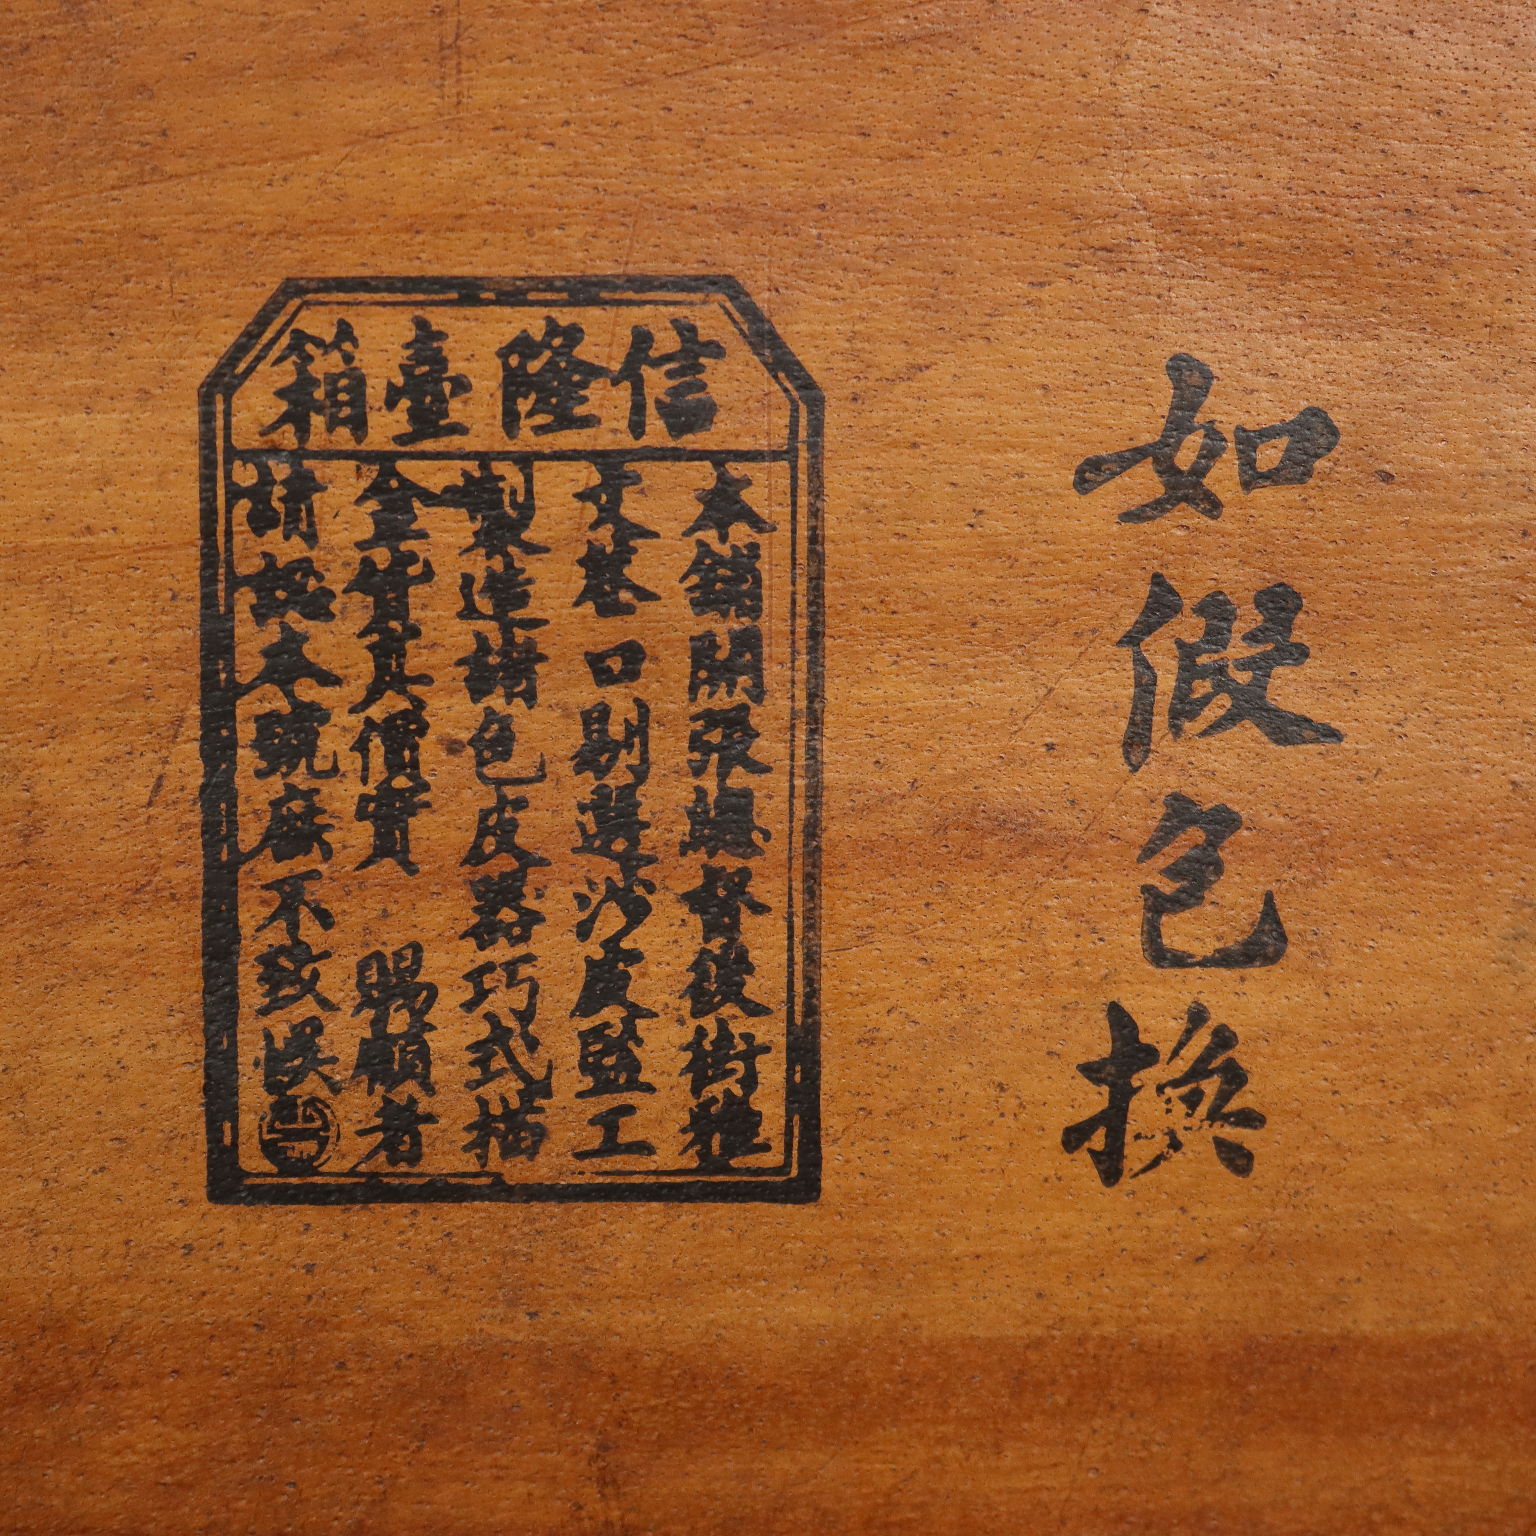 如假包換
信隆臺箱
本鋪開張總督後街雅
文巷口剔選沙皮監工
製造諸色皮器巧式描
金貨真價實 賜顧者
請認本號庶不致悞